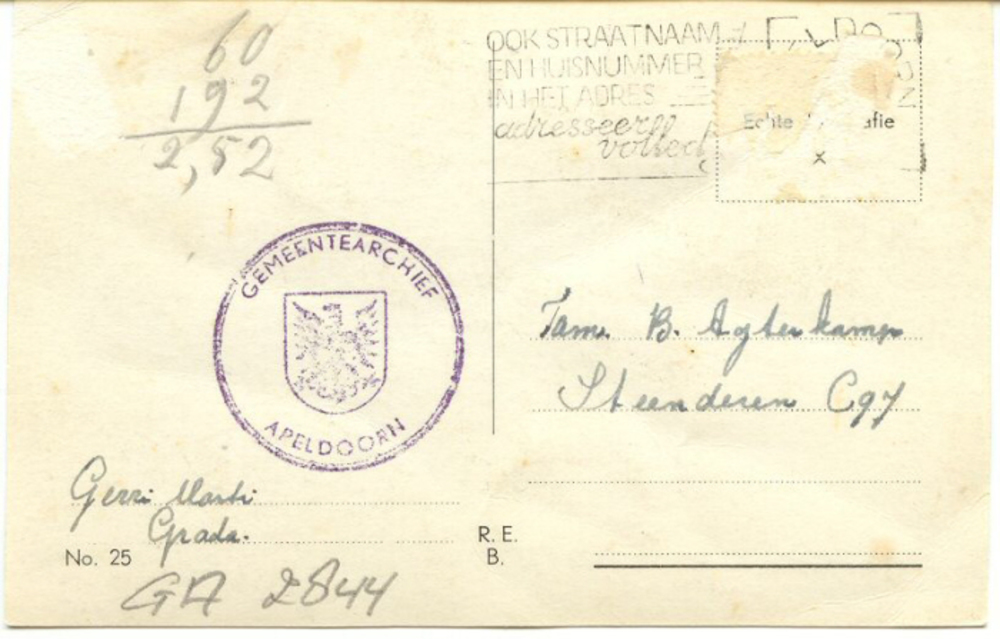 60
192
2,52
OOK STRAATNAAM
EN HUISNUMMER
IN HET ADRES
adresseer
volled
Echte afie
x
GEMEENTEARCHIEF
APELDOORN
Fam. B. Agterkamp
Steenderen C97
Gerri Marti
Grada.
No. 25
R. E.
B.
GA 2844